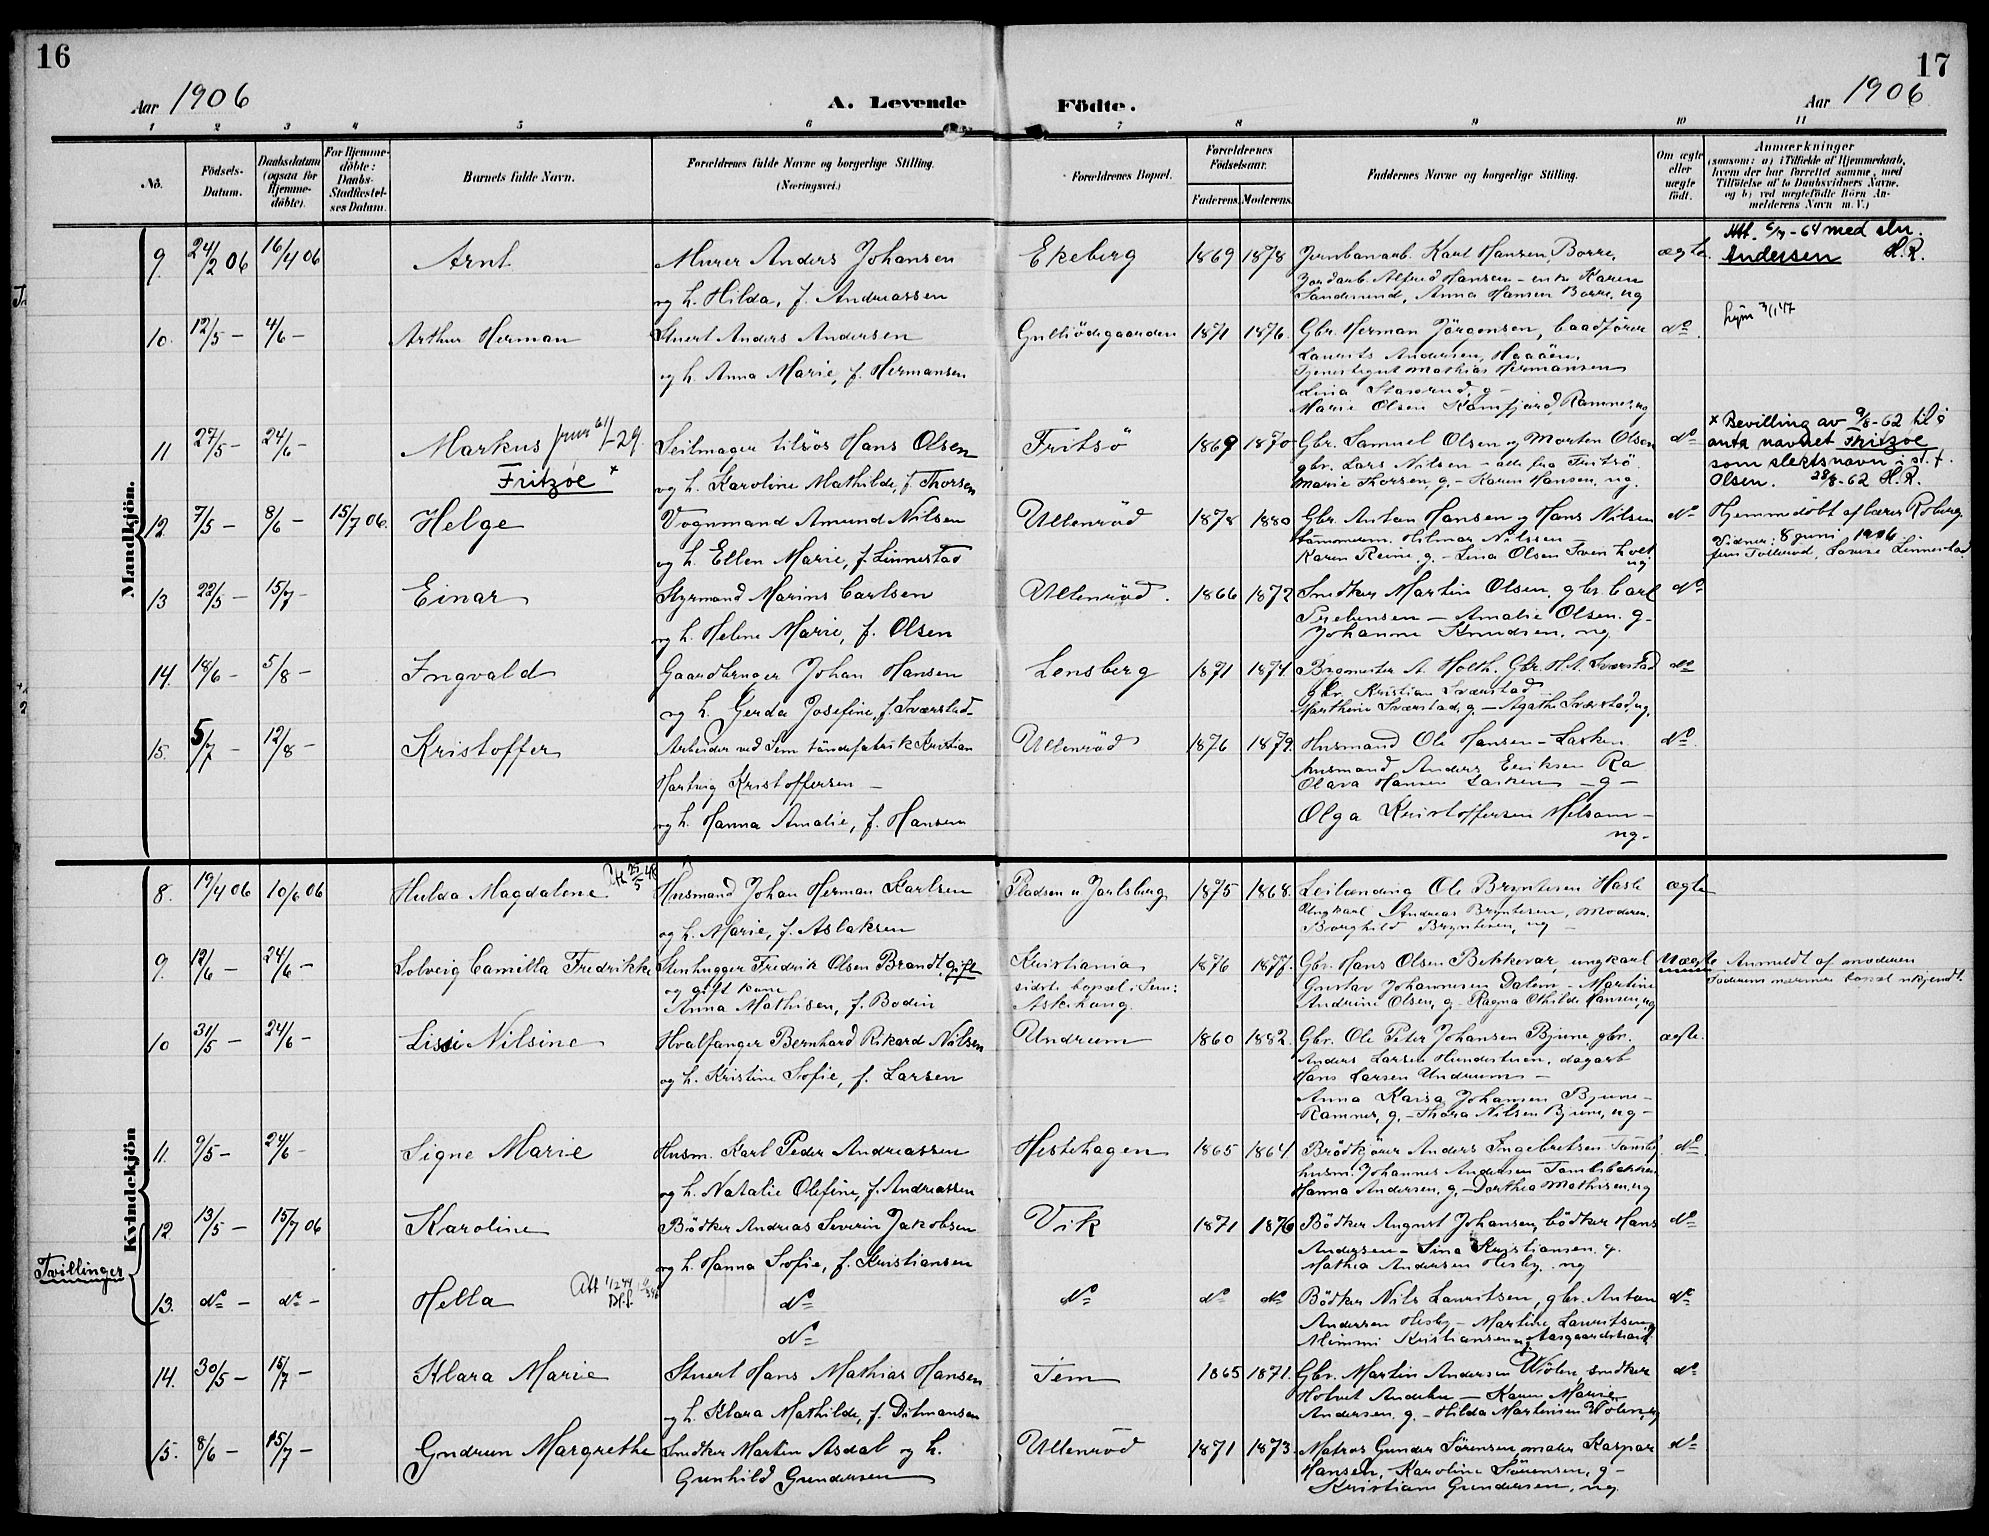 16
17
Aar 1906
A. Levende
Födte.
Aar 1906
1 2 3 4 5 6 7 8 9 10 11
No.
Födsels-Datum.
Daabsdatum (ogsaa for Hjemme-döbte).
For Hjemme-döbte: Daabs-Stadfæstel-ses Datum.
Barnets fulde Navn.
Forældrenes fulde Navne og borgerlige Stilling.
(Næringsvei.)
Forældrenes Bopæl.
Forældrenes Födselsaar.
Faderens. Moderens.
Faddernes Navne og borgerlige Stilling.
Om ægte eller uægte födt.
Anmærkninger
(saasom: a) i Tilfælde af Hjemmedaab, hvem der har forrettet samme, med Tilföielse af to Daabsvidners Navne, og b) ved uægtefödte Börn An-melderens Navn m. V.)
Mandkjön.
9. 24/2 06 16/4 06 Arnt Murer Anders Johansen Ekeberg 1869 1878 Jernbanearb. Karl Hansen Borre, ægte
og h. Hilda, f. Andreassen
Jordarb. Alfred Hansen – enke Karen
Anna Hansen Borre, ug
Att. - 64 med sln.
Andersen H.R.
10. 12/5 – 4/6 – Arthur Herman Stuert Anders Andersen Gulliödegaarden 1871 1876. Gbr. Herman Jörgensen, baadförer do
og h. Anna Marie, f. Hermansen
Laurits Andersen,
Tjenestegut Mathias Hermansen
Lina g –
Marie Olsen Kamfjord, Ramnes, ug
11 27/5 – 24/6 – Markus Seilmager tilsös Hans Olsen Fritsö 1869 1870 Gbr. Samuel Olsen og Morten Olsen do
Fritzøe x
og h. Karoline Mathilde, f. Thorsen
gbr. Lars Nilsen – alle fra Fritsö.
Marie Thorsen, g – Karen Hansen, ug.
x Bevilling av 9/8 - 62 til å
anta navnet Fritzøe
som slektsnavn i st. f.
Olsen. 28/8 - 62 H.R.
12. 7/5 – 8/6 – 15/7 06. Helge Vognmand Amund Nilsen Ullenröd 1878 1880 Gbr. Anton Hansen og Hans Nilsen do
og h. Ellen Marie, f. Linnestad
tömmerm. Hilmar Nilssen
Karen Reine g. – Lina Olsen Tven holt
ug
Hjemmedöbt af lærer Roberg.
Vidner: 8 juni 1906
Jens Tollerød, Lovise Linnestad
13 22/5 – 15/7 – Einar Styrmand Marius Carlsen Ullenröd. 1866 1872 Snedker Martin Olsen, gbr. Carl do
og h. Helene Marie, f. Olsen
– Amalie Olsen. g –
Johanne Knudsen, ug
14. 18/6 – 5/8 – Ingvald Gaardbruger Johan Hansen Lensberg 1871 1874. A. Holth. Gbr. H.A. Sværstad do
og h. Gerda Josefine, f. Sværstad
gbr. Kristian Sværstad
Marthine Sværstad, g. – Agathe Sværstad ug,
15. 5/7 – 12/8 – Kristoffer Arbeider ved Sem töndefabrik Kristian Ullenröd 1876 1879. Husmand Ole Hansen – Lasken do
Hartvig Kristoffersen –
husmand Anders Eriksen Ra
Olava Hansen Lasken – g –
og h. Hanna Amalie, f. Hansen
Olga Kristoffersen Melsom –
ug –
Kvindekjön
8. 19/4 06 10/6 06 Hulda Magdalene Husmand Johan Herman Karlsen Pladsen u Jarlsberg 1875 1868. Leilænding Ole Bryntesen Hasle ægte
25/5 48
og h. Marie, f. Aslaksen
Ungkarl Andreas Bryntesen, Moderen.
Borghild Bryntesen, ug –
9. 12/6 – 24/6 – Solveig Camilla Fredrikke Stenhugger Fredrik Olsen Brandt, gift Kristiania 1876 1877. Gbr. Hans Olsen Bekkevar, ungkarl Uægte
og gift kone
Anna Mathisen, f. Bodin
sidste bopæl i Sem:
Askehaug.
Gustav Johannesen Dalem – Martine
Andrine Olsen, g – Ragna Othilde Hansen, ug
Anmeldt af moderen
Faderens nærmere bopæl ukjendt.
10 31/5 – 24/6 – Lissi Nilsine Hvalfanger Bernhard Rikard Nilsen Undrum 1860 1882. Gbr. Ole Peter Johansen Bjune, gbr. ægte.
og h. Kristine Sofie, f. Larsen
Anders Larsen dagarb
Hans Larsen Undrum –
Anna Kaisa Johansen Bjune –
Ramnes, g. – Thora Nilsen Bjune, ug –
11. 9/5 – 24/6 – Signe Marie Husm. Karl Peder Andreassen Hestehagen 1865 1864 Brödkjörer Anders Ingebretsen do
og h. Natalie Olefine, f. Andreassen
husm. Johannes Andersen
Hanna Andersen, g. – Dorthea Mathisen, ug
Tvillinger
12. 13/5 – 15/7 06 Karoline Bödker Andreas Severin Jakobsen Vik 1871 1876 Bödker August Johansen, bödker Hans do
og h. Hanna Sofie, f. Kristiansen
Andersen – Lina Kristiansen, g.
Mathea Andersen Hesby, ug
13. do – do – Hella do do do do Bödker Nils Lauritsen, gbr. Anton do
Att
do
Andersen Hesby – Martine Lauritsen g
Mimmi Kristiansen ug
14. 30/5 – 15/7 – Klara Marie Stuert Hans Mathias Hansen Sem 1865 1871. Gbr. Martin Andersen Wölen, snedker do
og h. Klara Mathilde, f. Ditmansen
– Karen Marie
Andersen, g – Hilda Martinsen Wölen, ug
15. 8/6 – 15/7 – Gudrun Margrethe Snedker Martin Asdal og h. Ullenröd 1871 1873. Matros Gunder Sörensen, maler Kaspar do
Gunhild Gundersen
Hansen, – Karoline Sörensen, g –
Kristiane Gundersen, ug